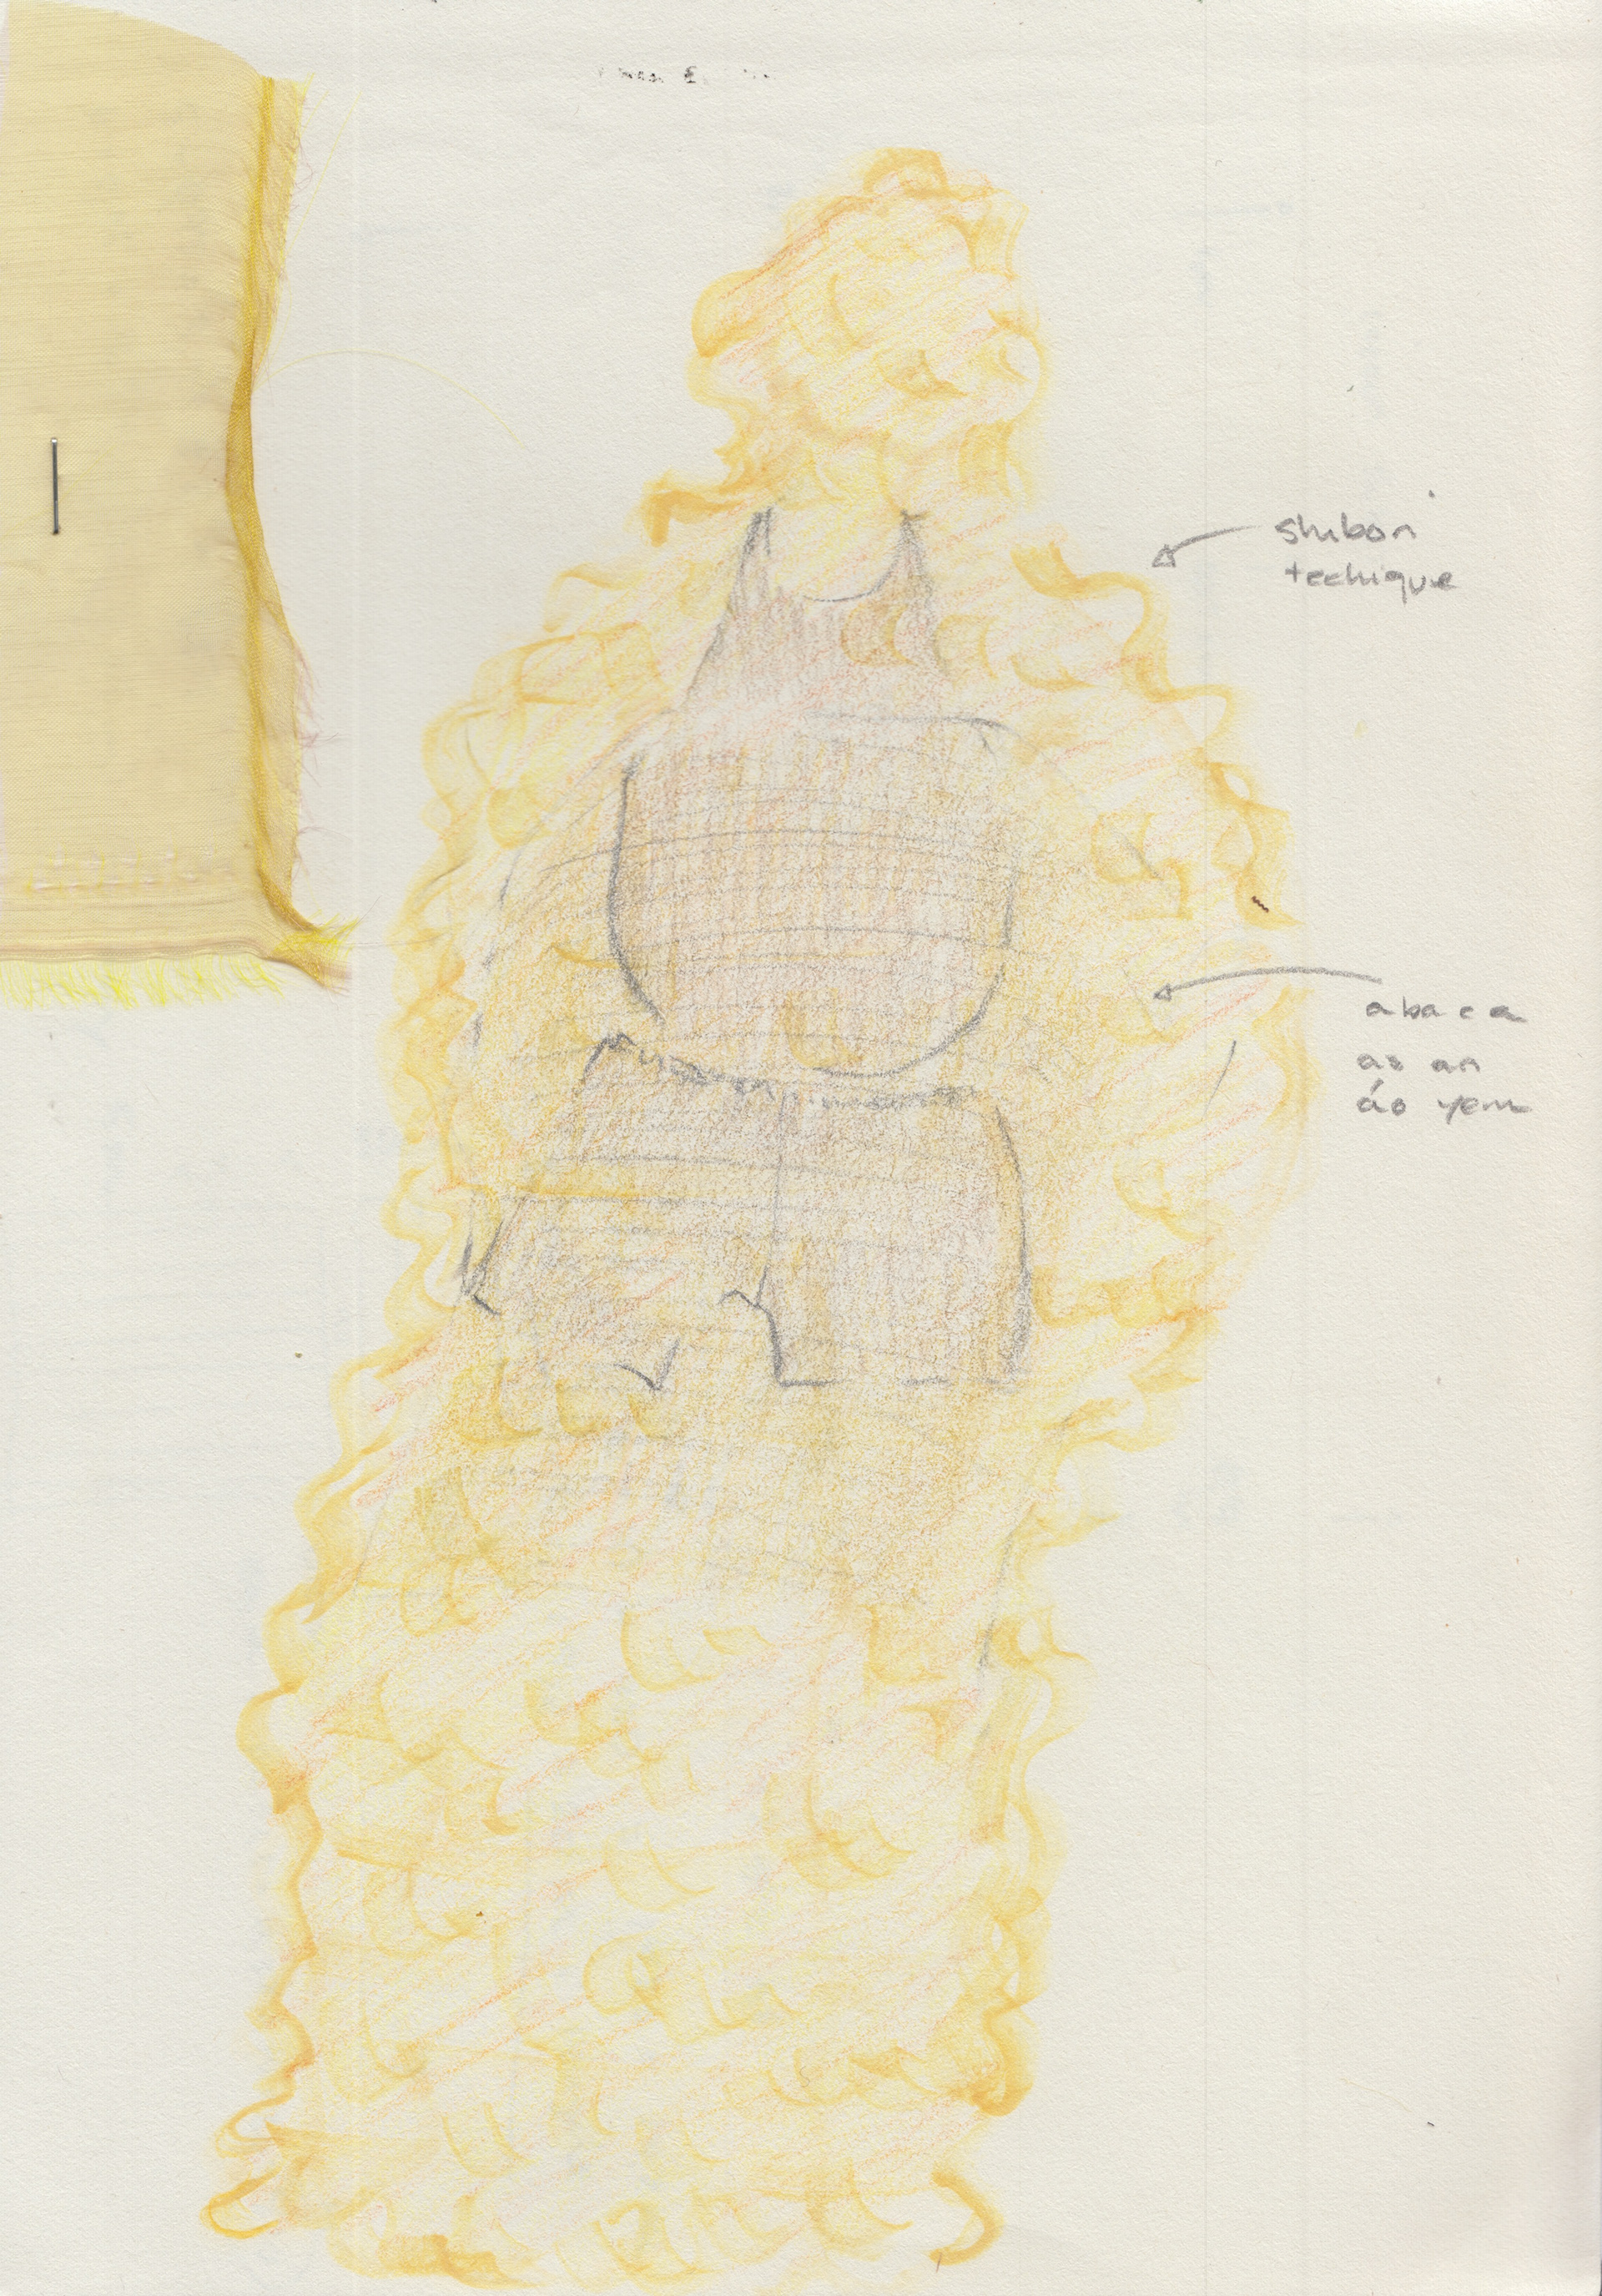 shibori
techique
abaca
as an
áo yem